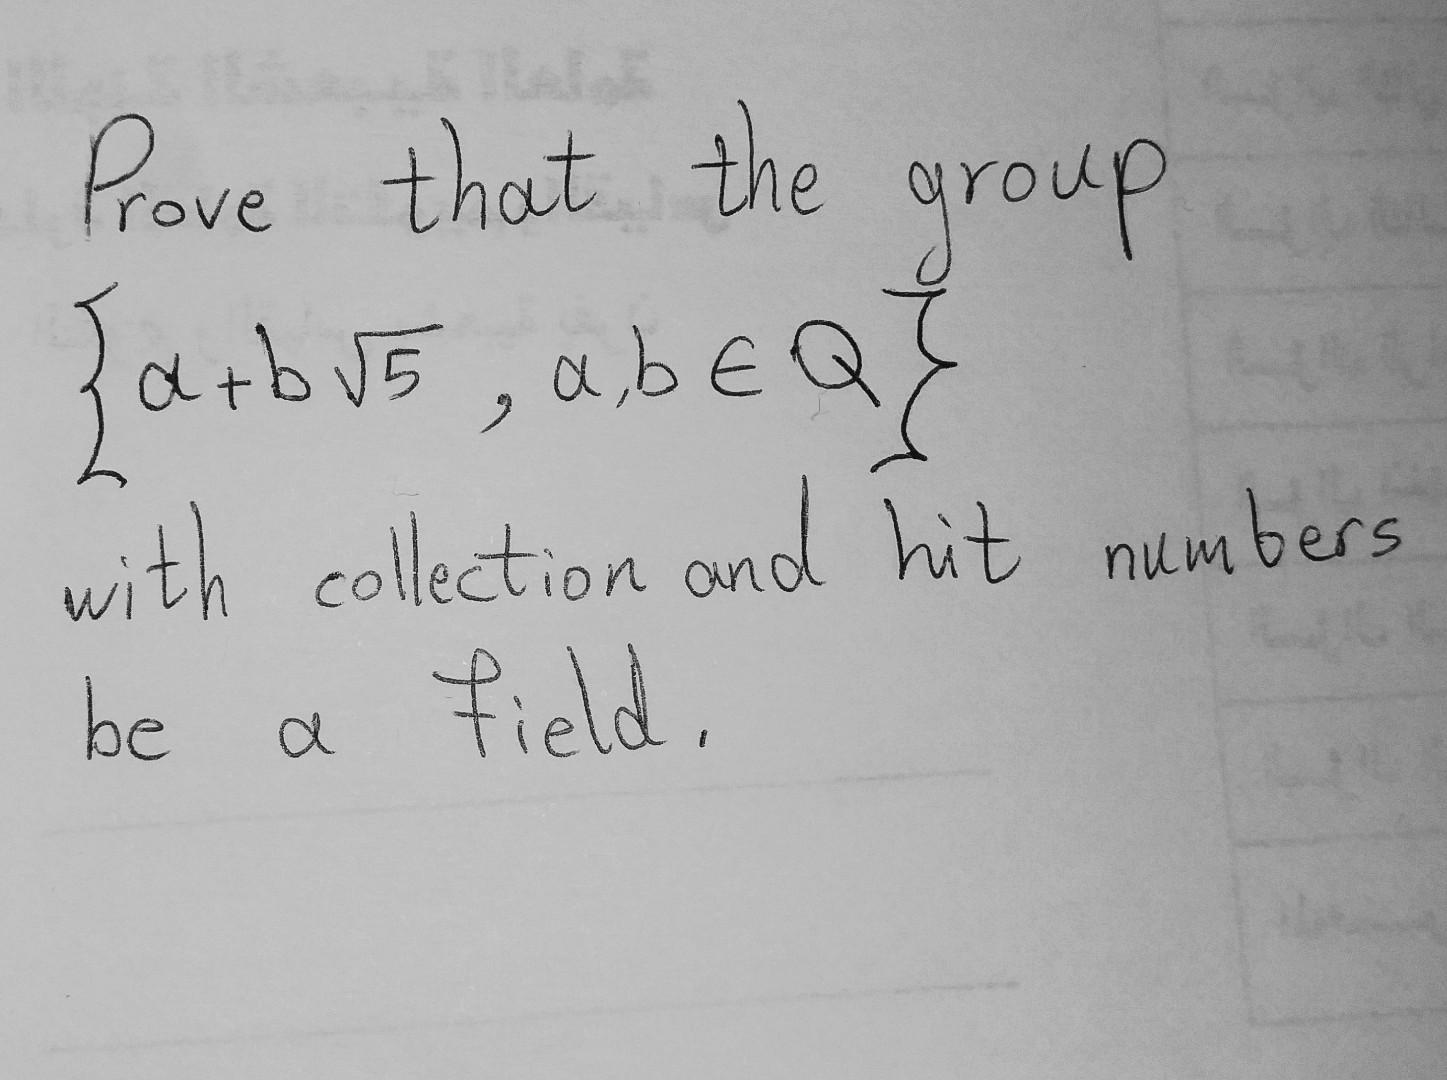 Prove that the group
{a+b√5 , a,b ∈ Q}
with collection and hit numbers
be a field.